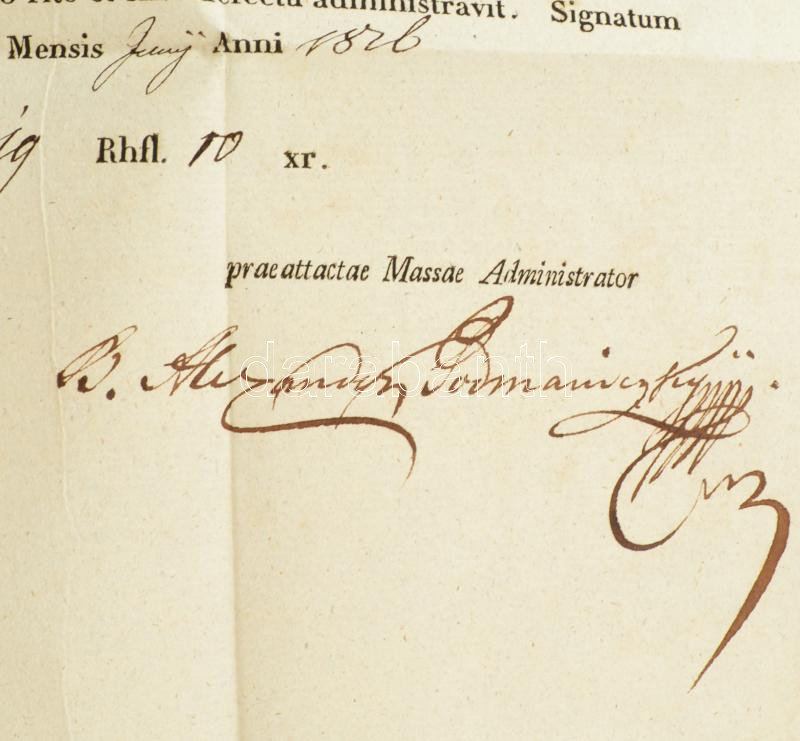 defectu administravit. Signatum
Mensis Junÿ Anni 1826
ig Rhfl. 10 xr.
praeattactae Massae Administrator
B. Alexander Podmaniczkÿ.
darabanth